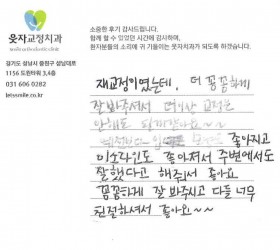 소중한 후기 감사드립니다.
함께 할 수 있었던 시간에 감사하며,
환자분들의 소리에 귀 기울이는 웃자교정치과가 되도록 하겠습니다.
웃자교정치과
smile orthodontic clinic
경기도 성남시 중원구 성남대로
1156 도원타워 3,4층
031 606 0282
letssmile.co.kr
재교정이였는데, 더 꼼꼼하게
잘봐주셔서 더이상 교정은
안해도
좋아지고
미소라인도 좋아져서 주변에서도
잘했다고 해주셔서 좋아요
꼼꼼하게 잘 봐주시고 다들 너무
친절하셔서 좋아요~~